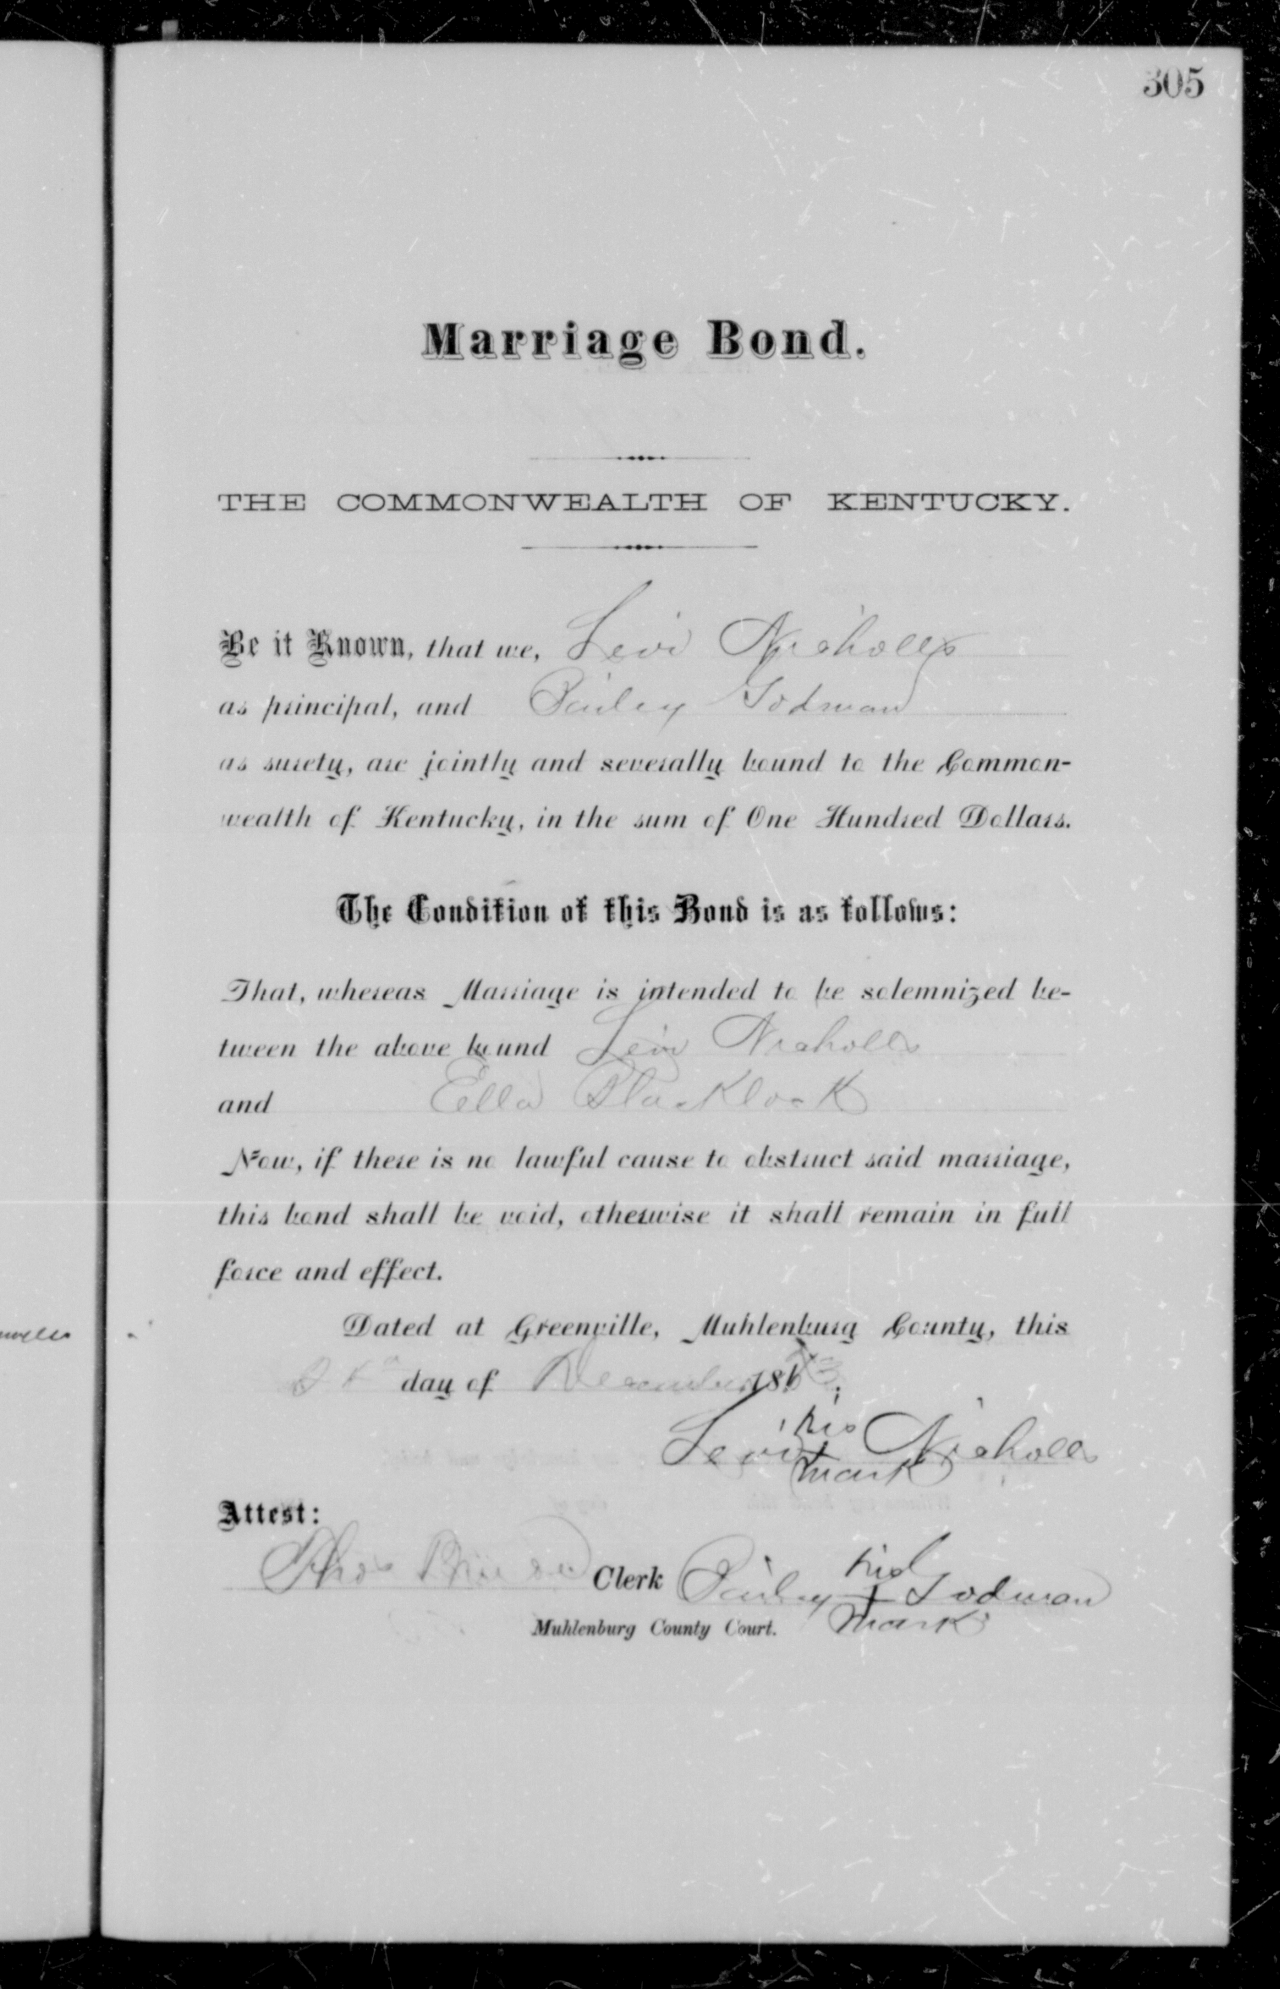 305
Marriage Bond.
THE COMMONWEALTH OF KENTUCKY.
Be it Known, that we, Levi Nicholls
as principal, and Godman
as surety, are jointly and severally bound to the Common-
wealth of Kentucky, in the sum of One Hundred Dollars.
The Condition of this Bond is as follows:
That, whereas Marriage is intended to be solemnized be-
tween the above bound Levi Nicholls
and Ella Blacklock
Now, if there is no lawful cause to obstruct said marriage,
this bond shall be void, otherwise it shall remain in full
force and effect.
Dated at Greenville, Muhlenburg County, this
day of December 18
his
Levi + Nicholls
mark
Attest:
his
Thos Clerk + Godman
Muhlenburg County Court. mark